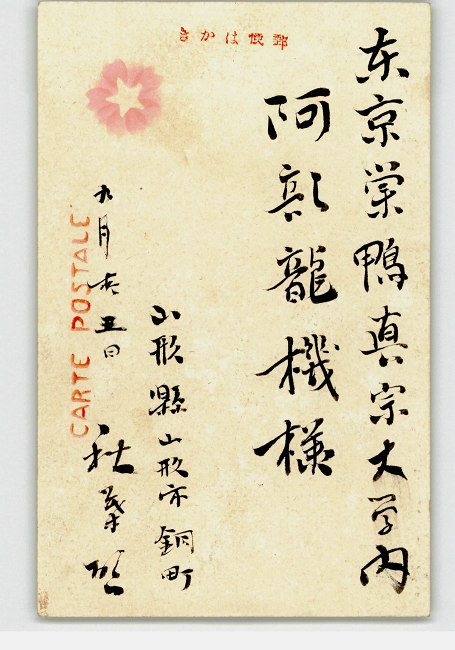 郵便はかき
东京巣鴨真宗大学内
阿部龍機様
山形縣山形市銅町
九月五日
秋葉
CARTE POSTALE